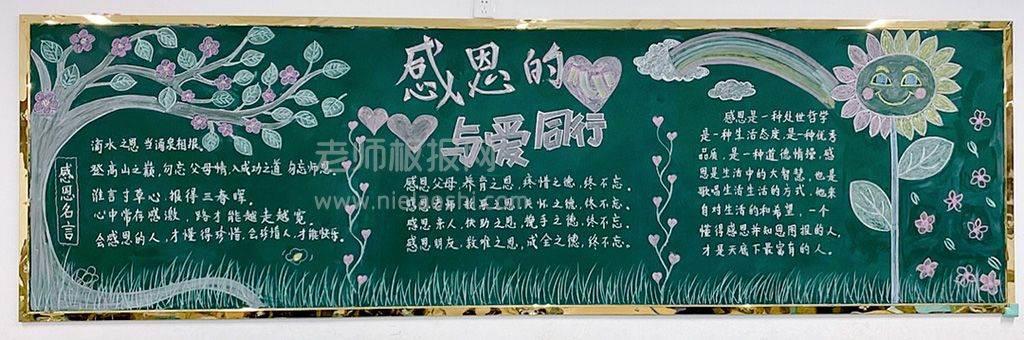 感恩的
与爱同行
感恩名言
滴水之恩 当涌泉相报。
登高山之巅,勿忘父母情,入成功之道 勿忘师恩。
谁言寸草心 报得三春晖。
心中常存感激,路才能越走越宽。
会感恩的人,才懂得珍惜,会珍惜人,才能快乐。
感恩父母,养育之恩,疼惜之德,终不忘。
感恩
之恩,
怀之德,终不忘。
感恩亲人,扶助之恩,挽手之德,终不忘。
感恩朋友,救难之恩,成全之德,终不忘。
感恩是一种处世哲学
是一种生活态度,是一种优秀
品质,是一种道德情操,感
恩是生活中的大智慧,也是
歌唱生活生活的方式,他来
自对生活的和希望,一个
懂得感恩并知恩图报的人,
才是天底下最富有的人。
老师板报网